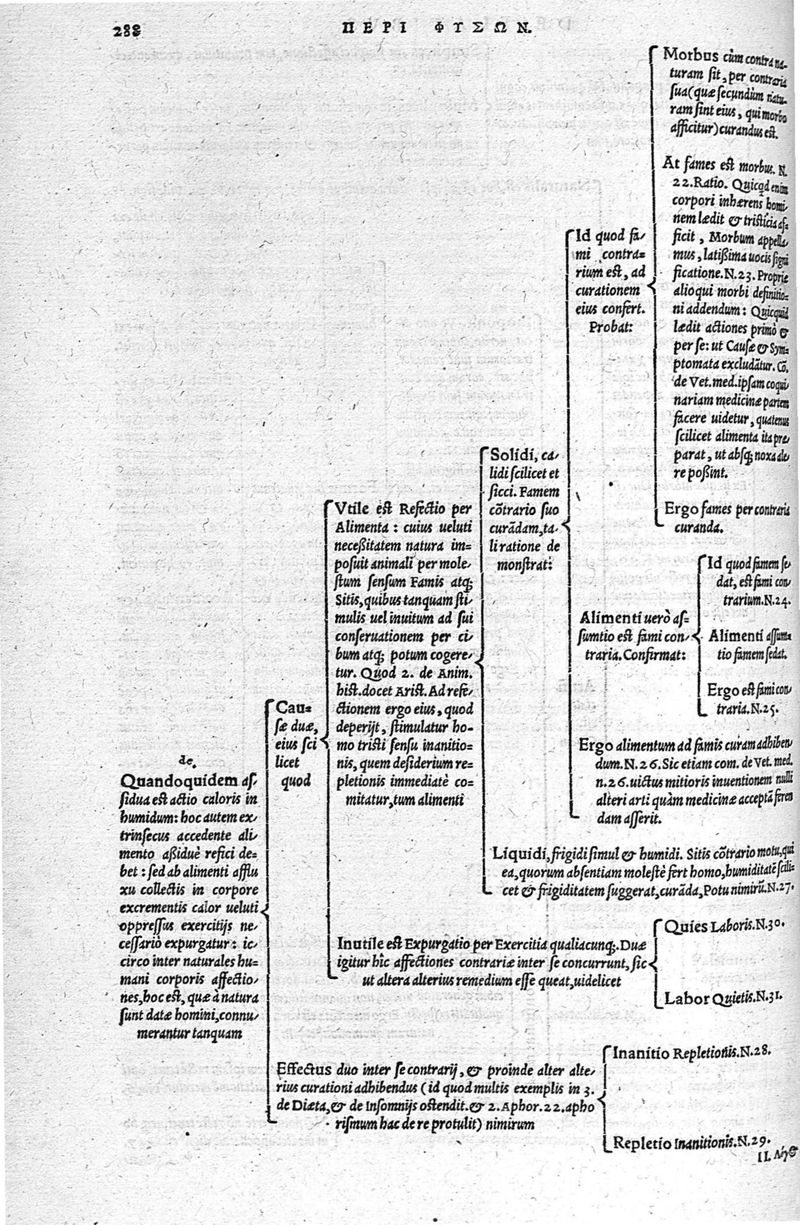 288
ΠΕΡΙ ΦΥΣΩΝ.
de.
Quandoquidem as-
sidua est actio caloris in
humidum: hoc autem ex-
trinsecus accedente ali-
mento aßiduè refici de-
bet: sed ab alimenti afflu
xu collectis in corpore
excrementis calor ueluti
oppressus exercitijs ne-
cessariò expurgatur: ic-
circo inter naturales hu-
mani corporis affectio-
nes, hoc est, quæ à natura
sunt datæ homini, connu-
merantur tanquam
Cau-
sæ duæ,
eius sci
licet
quod
Vtile est Refectio per
Alimenta: cuius ueluti
neceßitatem natura im-
posuit animali per mole-
stum sensum Famis atq;
Sitis, quibus tanquam sti-
mulis uel inuitum ad sui
conseruationem per ci-
bum atq; potum cogere-
tur. Quod 2. de Anim.
hist. docet Arist. Ad refe-
ctionem ergo eius, quod
deperijt, stimulatur ho-
mo tristi sensu inanitio-
nis, quem desiderium re-
pletionis immediatè co-
mitatur, tum alimenti
Solidi, ca-
lidi scilicet et
sicci. Famem
cõtrario suo
curãdam, ta-
li ratione de
monstrat:
Id quod fa-
mi contra-
rium est, ad
curationem
eius confert.
Probat:
Morbus cùm contra na-
turam sit, per contraria
sua (quæ secundùm natu-
ram sint eius, qui morbo
afficitur) curandus est.
At fames est morbus. N.
22. Ratio. Quicqd enim
corpori inhærens homi-
nem lædit & tristicia af-
ficit, Morbum appella-
mus, latißima uocis signi
ficatione. N.23. Propriæ
alioqui morbi definitio-
ni addendum: Quicquid
lædit actiones primò &
per se: ut Causæ & Sym-
ptomata excludãtur. Cõ.
de Vet. med. ipsam coqui
nariam medicinæ partem
facere uidetur, quatenus
scilicet alimenta ita præ-
parat, ut absq; noxa ale-
re poßint.
Ergo fames per contraria
curanda.
Alimenti uerò as-
sumtio est fami con-
traria. Confirmat:
Id quod famem se-
dat, est fami con-
trarium. N.24.
Alimenti assum-
tio famem sedat.
Ergo est fami con-
traria. N.25.
Ergo alimentum ad famis curam adhiben-
dum. N.26. Sic etiam com. de Vet. med.
n.26. uictus mitioris inuentionem nulli
alteri arti quàm medicinæ acceptã feren
dam asserit.
Liquidi, frigidi simul & humidi. Sitis cõtrario motu, qui
ea, quorum absentiam molestè fert homo, humiditatẽ scili-
cet & frigiditatem suggerat, curãda, Potu nimirũ. N.27.
Inutile est Expurgatio per Exercitia qualiacunq;. Duæ
igitur hîc affectiones contrariæ inter se concurrunt, sic
ut altera alterius remedium esse queat, uidelicet
Quies Laboris. N.30.
Labor Quietis. N.31.
Effectus duo inter se contrarij, & proinde alter alte-
rius curationi adhibendus (id quod multis exemplis in 3.
de Diæta, & de Insomnijs ostendit. & 2. Aphor. 22. apho
rismum hac de re protulit) nimirum
Inanitio Repletionis. N.28.
Repletio Inanitionis. N.29.
II.